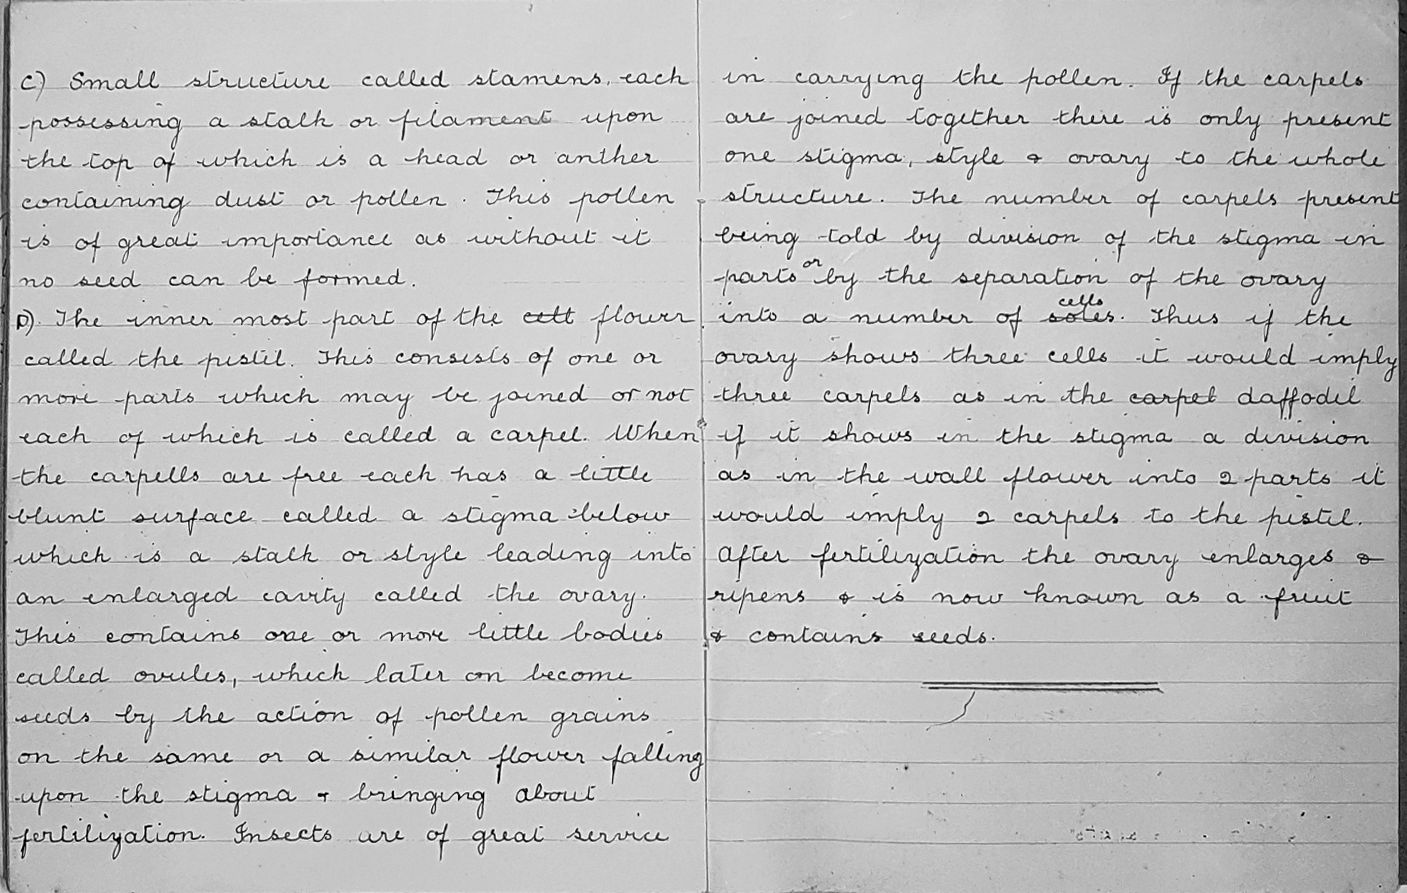 C) Small structure called stamens, each
possessing a stalk or filament upon
the top of which is a head or anther
containing dust or pollen. This pollen
is of great importance as without it
no seed can be formed.
D) The inner most part of the cell flower
called the pistil. This consists of one or
more parts which may be joined or not
each of which is called a carpel. When
the carpells are free each has a little
blunt surface called a stigma below
which is a stalk or style leading into
an enlarged cavity called the ovary.
This contains one or more little bodies
called ovules, which later on become
seeds by the action of pollen grains
on the same or a similar flower falling
upon the stigma & bringing about
fertilization. Insects are of great service
in carrying the pollen. If the carpels
are joined together there is only present
one stigma, style & ovary to the whole
structure. The number of carpels present
being told by division of the stigma in
parts or by the separation of the ovary
into a number of cells. Thus if the
ovary shows three cells it would imply
three carpels as in the carpel daffodil
if it shows in the stigma a division
as in the wall flower into 2 parts it
would imply 2 carpels to the pistil.
After fertilization the ovary enlarges &
ripens & is now known as a fruit
& contains seeds.